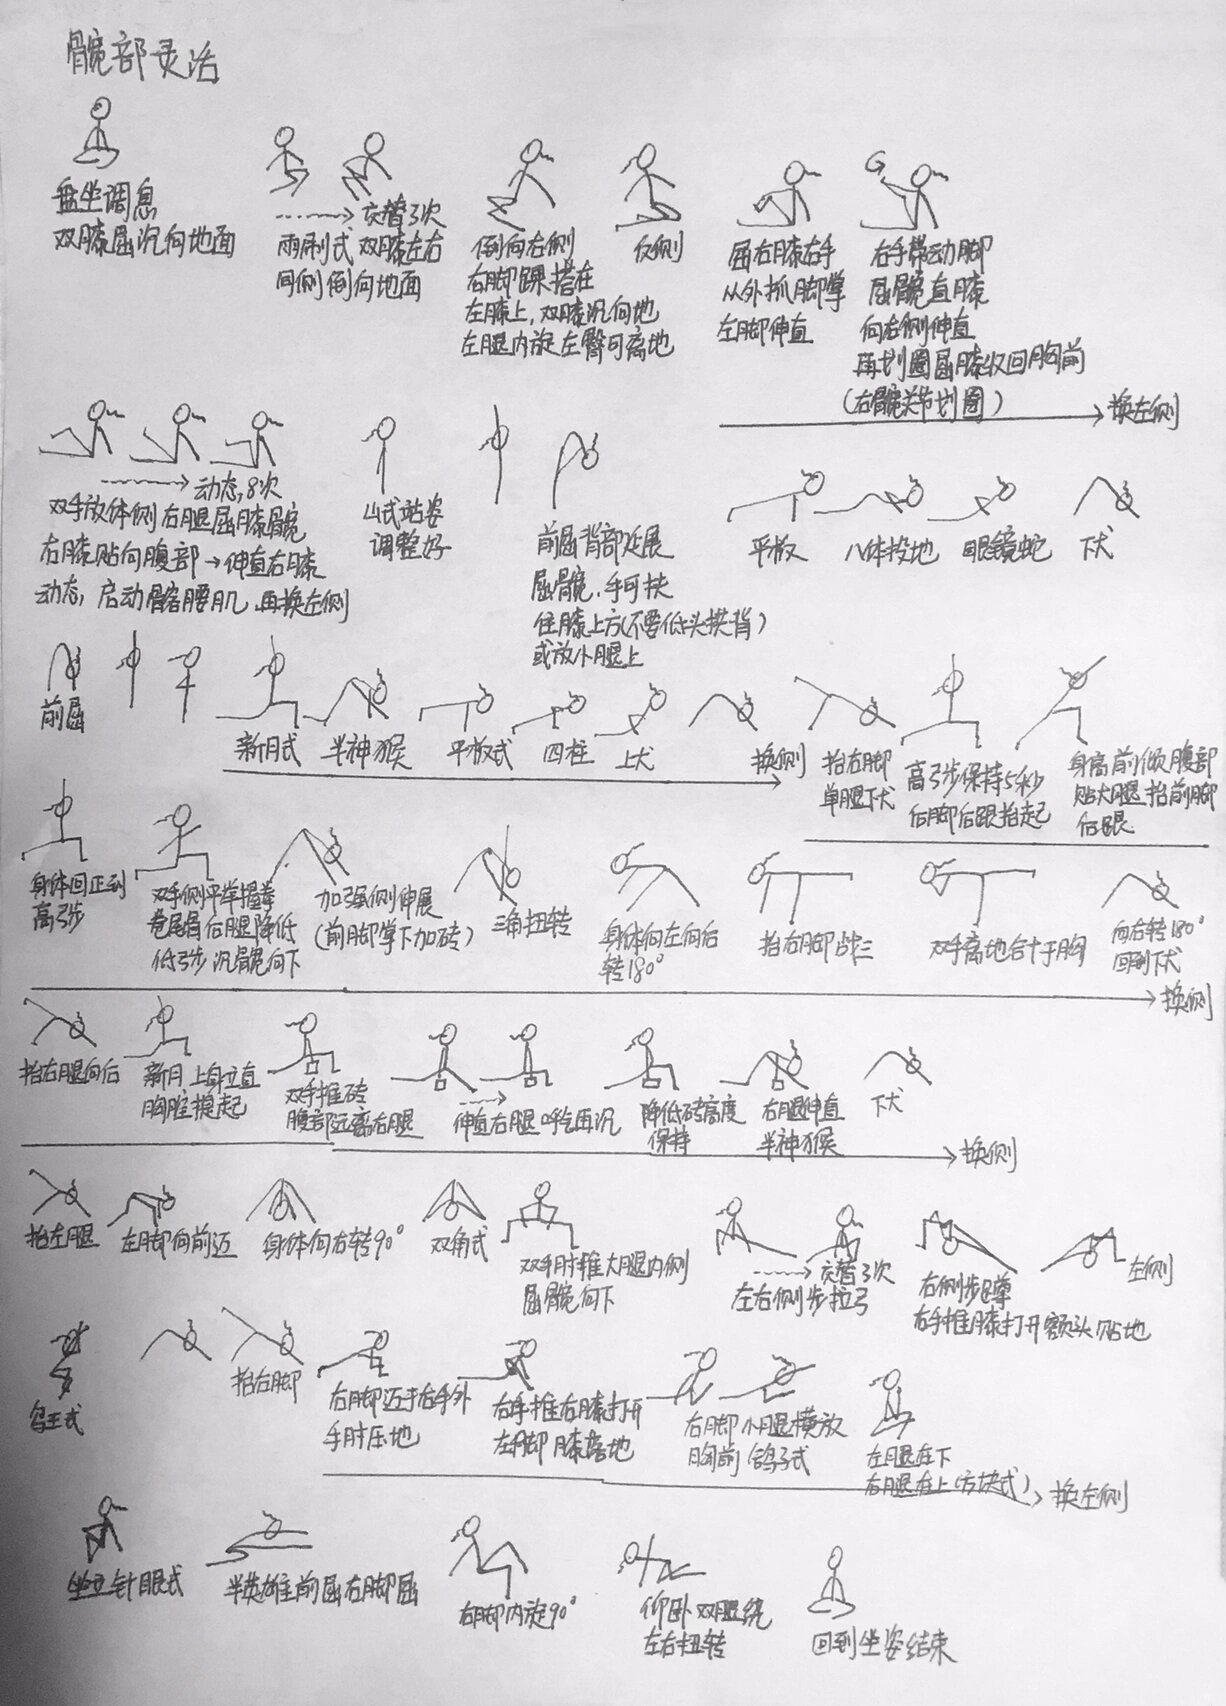 髋部灵活
盘坐调息
双膝屈沉向地面
交替3次
雨刷式 双膝左右
同侧倒向地面
倒向右侧
右脚踝搭在
左膝上,双膝沉向地
左腿内旋左臀可离地
反侧
屈右膝右手
从外抓脚掌
左脚伸直
右手带动脚
屈髋直膝
向右侧伸直
再划圈屈膝收回胸前
(右髋关节划圈)
换左侧
动态,8次
双手放体侧 右腿屈膝屈髋
右膝贴向腹部→伸直右膝
动态,启动髂腰肌 再换左侧
山式站姿
调整好
前屈背部延展
屈髋,手可扶
住膝上方(不要低头拱背)
或放小腿上
平板
八体投地
眼镜蛇
下犬
前屈
新月式
半神猴
平板式
四柱
上犬
换侧
抬右脚
单腿下犬
高弓步保持5秒
后脚后跟抬起
身高前倾腹部
贴大腿抬前脚
后跟
身体回正到
高弓步
双手侧平举握拳
卷尾骨后腿降低
低弓步 沉髋向下
加强侧伸展
(前脚掌下加砖)
三角扭转
身体向左向后
转180°
抬右脚战三
双手离地合十于胸
向右转180°
回到下犬
换侧
抬右腿向后
新月上身立直
胸腔提起
双手推砖
腹部远离右腿
伸直右腿呼气再沉
降低砖高度
保持
右腿伸直
半神猴
下犬
换侧
抬左腿
左脚向前迈
身体向右转90°
双角式
双手肘推大腿内侧
屈髋向下
交替3次
左右侧步拉弓
右侧步蹲
右手推膝打开额头贴地
左侧
鸟王式
抬右脚
右脚迈于右手外
手肘压地
右手推右膝打开
左脚膝落地
右脚小腿横放
胸前 鸽子式
左腿在下
右腿在上(方块式)
换左侧
坐立针眼式
半英雄前屈右脚屈
右脚内旋90°
仰卧双腿绕
左右扭转
回到坐姿结束